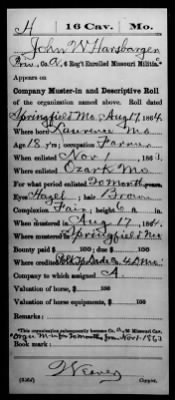 H | 16 Cav. | Mo.
John W Harsbarger
Priv., Co. A, 6 Reg't Enrolled Missouri Militia*
Appears on
Company Muster-in and Descriptive Roll
of the organization named above. Roll dated
Springfield Mo, Aug 17, 1864.
Where born Laurence Mo
Age 18 y'rs; occupation Farmer
When enlisted Nov 1, 1863.
Where enlisted Ozark Mo.
For what period enlisted 20 months years.
Eyes Hazel; hair Brown
Complexion Fair; height 6 ft. in.
When mustered in Aug 17, 1864.
Where mustered in Springfield Mo
Bounty paid $ 100; due $ 100
Where credited
Company to which assigned A
Valuation of horse, $ 100
Valuation of horse equipments, $ 100
Remarks:
*This organization subsequently became Co. A, 16 Missouri Cav.
Orga M-in for 20 months from Nov 1-1863
Book mark:
Weaver
Copyist.